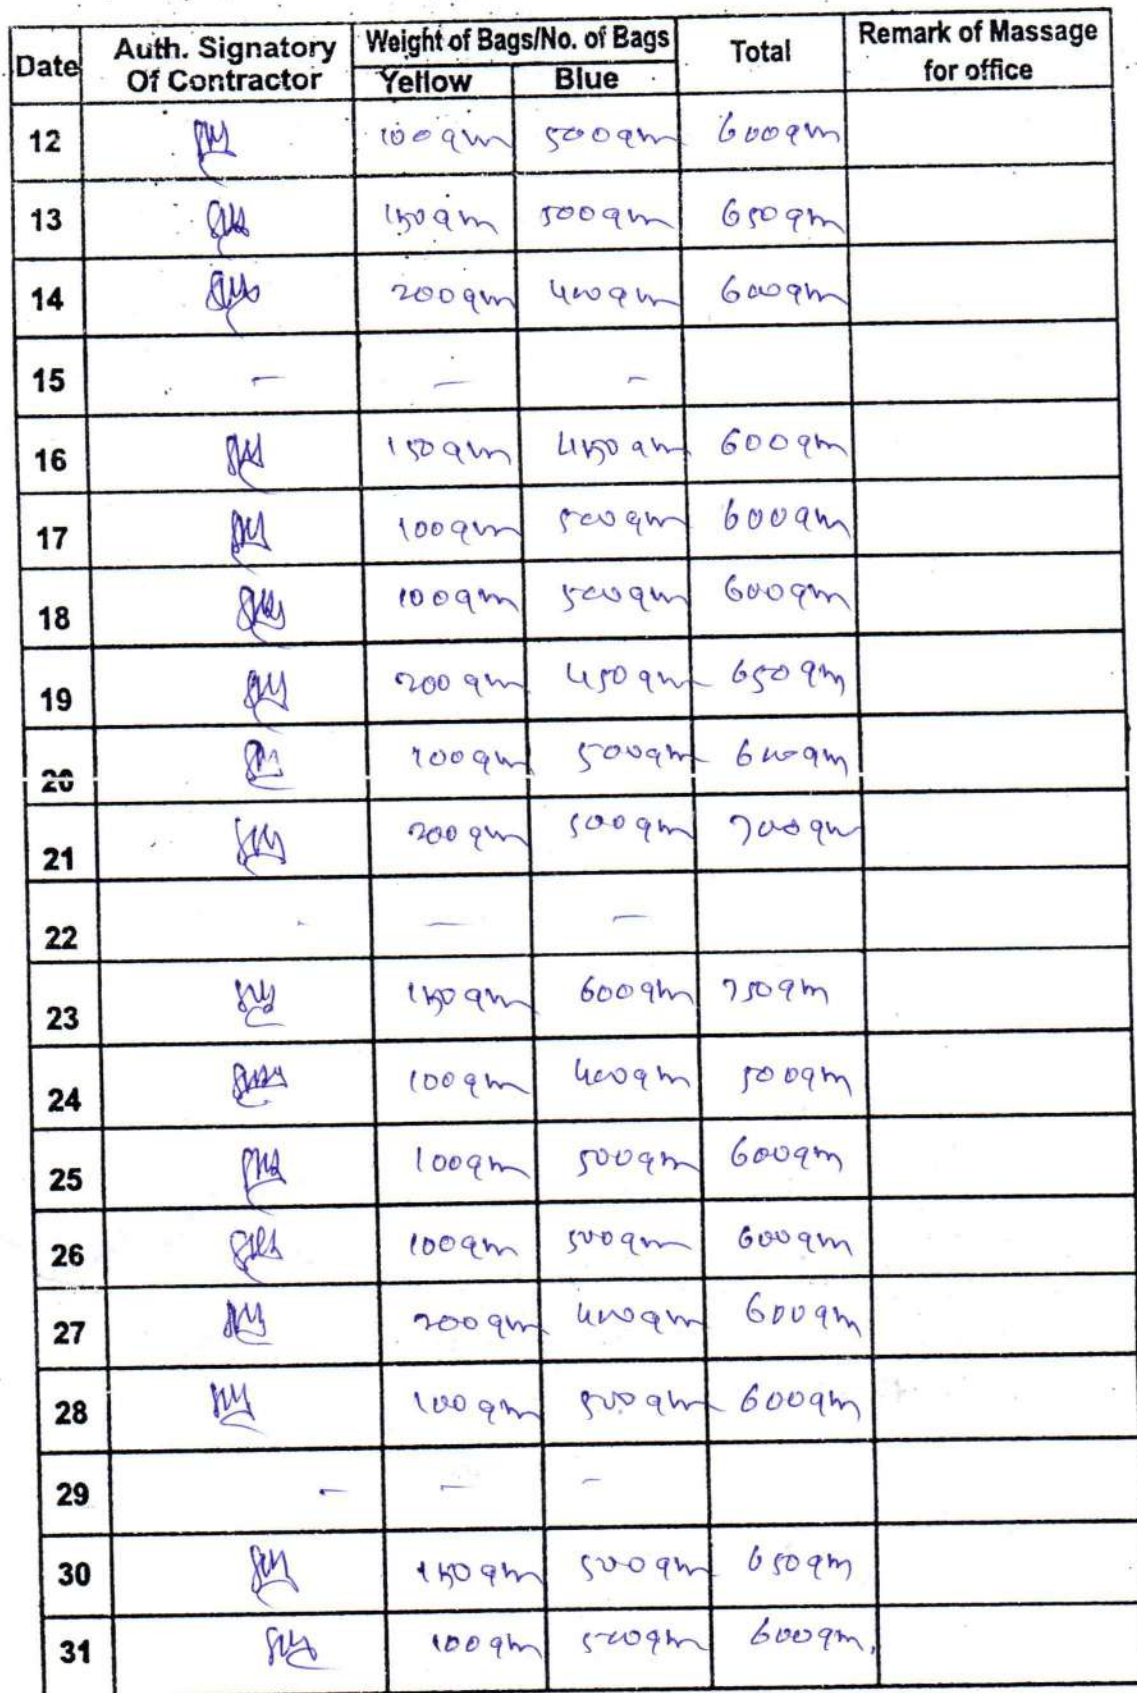 Date Auth. Signatory Of Contractor Weight of Bags/No. of Bags Total Remark of Massage for office
Yellow Blue
12 100 gm 500 gm 600 gm
13 150 gm 500 gm 650 gm
14 200 gm 400 gm 600 gm
15 - - -
16 150 gm 450 gm 600 gm
17 100 gm 500 gm 600 gm
18 100 gm 500 gm 600 gm
19 200 gm 450 gm 650 gm
20 100 gm 500 gm 600 gm
21 200 gm 500 gm 700 gm
22 - - -
23 150 gm 600 gm 750 gm
24 100 gm 400 gm 500 gm
25 100 gm 500 gm 600 gm
26 100 gm 500 gm 600 gm
27 200 gm 400 gm 600 gm
28 100 gm 500 gm 600 gm
29 - - -
30 150 gm 500 gm 650 gm
31 100 gm 500 gm 600 gm.